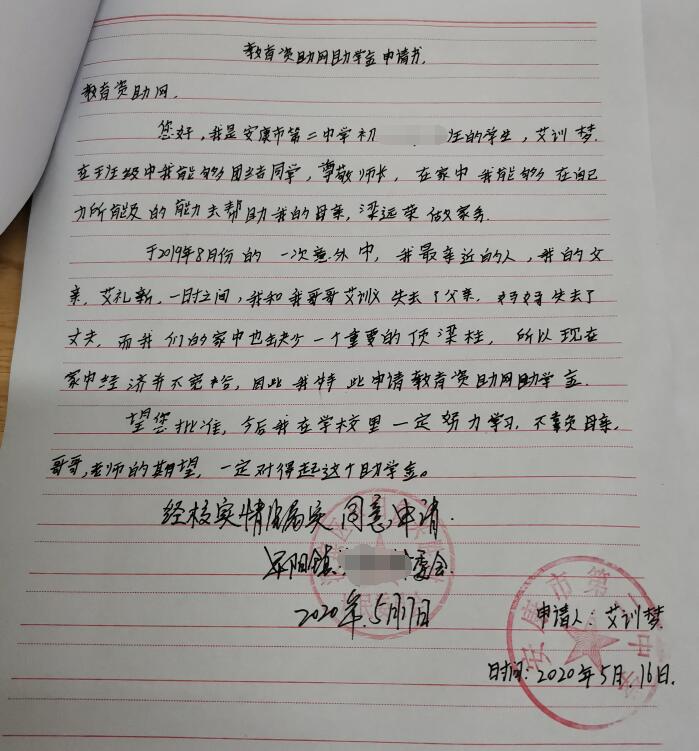 教育资助网助学金申请书.
教育资助网.
您好,我是安康市第二中学初 班的学生,艾训梦.
在班级中我能够团结同学,尊敬师长,在家中我能够在自己
力所能及的能力去帮助我的母亲,梁远荣做家务.
于2019年8月份的一次意外中,我最亲近的人,我的父
亲,艾礼新,一时之间,我和我哥哥艾训 失去了父亲,妈妈失去了
丈夫,而我们的家中也缺少一个重要的顶梁柱,所以现在
家中经济并不宽裕,因此我特此申请教育资助网助学金.
望您批准,今后我在学校里一定努力学习,不辜负母亲,
哥哥,老师的期望,一定对得起这个助学金。
经核实情况属实 同意申请.
阳镇 委会.
2020年5月17日
申请人:艾训梦
时间:2020年5月16日.
安康市第二中学